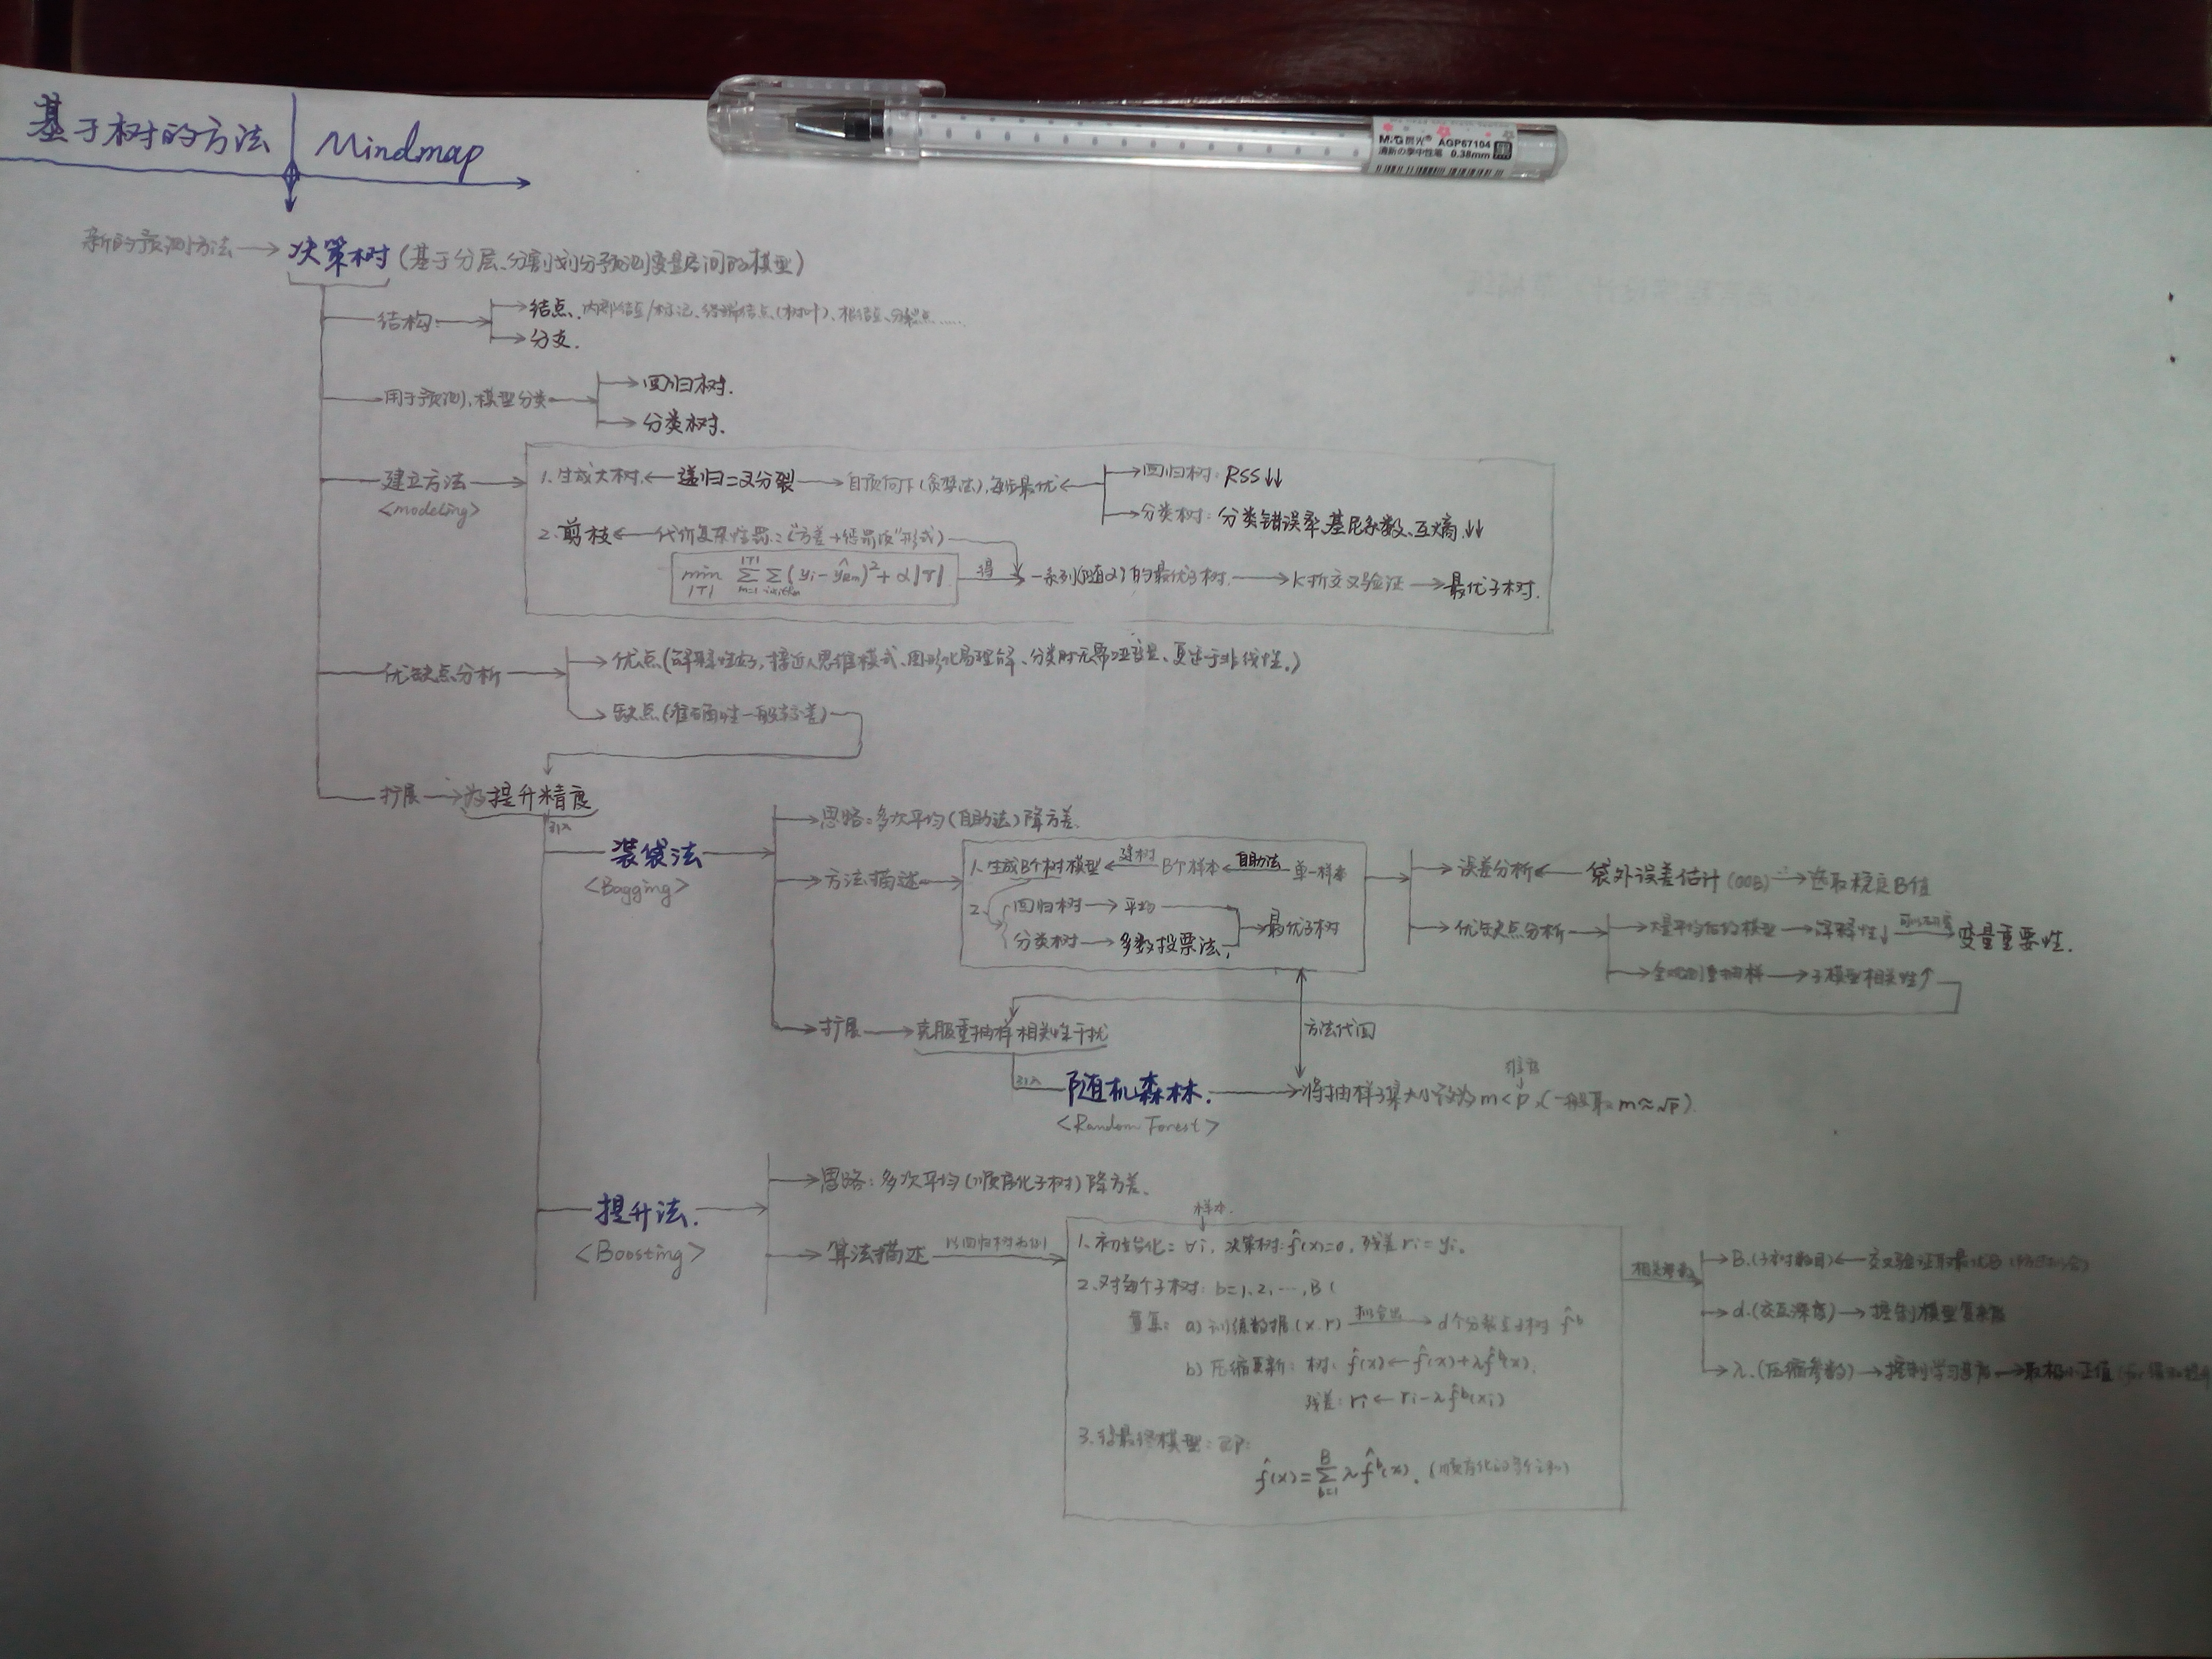 基于树的方法 Mindmap
M&G 晨光 AGP67104
0.38mm 黑
新的预测方法 → 决策树 (基于分层、分割划分预测变量空间的模型)
结构 → 结点、内部结点/标记、终端结点(树叶)、根结点、分裂点……
→ 分支.
用于预测,模型分类 → 回归树.
→ 分类树.
建立方法 <modeling>
1.生成大树 ← 递归二叉分裂 → 自顶向下(贪婪法),每步最优 ← 回归树: RSS↓↓
→ 分类树: 分类错误率、基尼系数、互熵↓↓
2.剪枝 ← 代价复杂性 ("方差+惩罚项"形式)
min |T| Σ m=1 |T| Σ (yi-ŷRm)²+α|T| 得 → 一系列 的最优子树 → K折交叉验证 → 最优子树.
优缺点分析 → 优点(解释性好,接近人思维模式、图形化易理解、分类时无需哑变量、更适于非线性。)
→ 缺点(准确性一般较差)
扩展 → 为提升精度
引入
装袋法 <Bagging>
→ 思路: 多次平均(自助法)降方差.
→ 方法描述
1.生成B个树模型 ← 建树 B个样本 ← 自助法 单一样本
2. 回归树 → 平均
分类树 → 多数投票法
→ 最优子树
→ 误差分析 ← 袋外误差估计(OOB) → 选取稳定B值
→ 优缺点分析 → 大量平均后的模型 → 解释性↓ → 变量重要性.
→ 重抽样 → 子模型相关性↑
→ 扩展 → 克服重抽样相关性干扰
方法代回
引入 随机森林. → 将抽样子集大小改为m<p,(一般取m≈√p)
<Random Forest>
提升法. <Boosting>
→ 思路: 多次平均(顺序化子树)降方差、
样本.
→ 算法描述 以回归树为例
1.初始化: ∀i, 决策树: f̂(x)=0, 残差 ri=yi。
2.对每个子树: b=1,2,…,B(
重复: a) 训练数据(x,r) 拟合出 → d个分裂点子树 f̂ᵇ
b) 压缩更新: 树: f̂(x)←f̂(x)+λf̂ᵇ(x).
残差: ri←ri-λf̂ᵇ(xi)
3.得最终模型: 即:
f̂(x)=Σ b=1 B λf̂ᵇ(x).
相关参数
→ B.(子树数目) ← 交叉验证取最优B
→ d.(交互深度) → 控制模型复杂度
→ λ.(压缩参数) → 控制学习速度 → 取极小正值